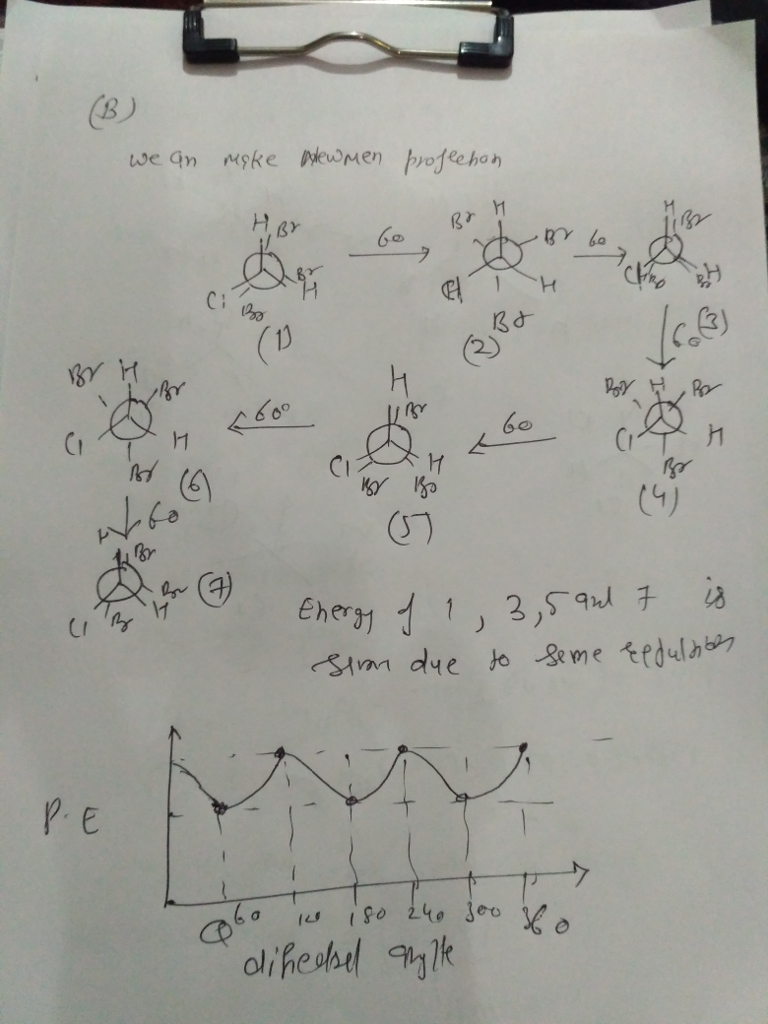 (B)
we can make Newmen projection
H Br
Br
H
Cl
Br
(1)
60
Br H
Br
H
Br
(2)
60
H Br
Cl
H
(3)
60
Br H Br
Cl H
Br
(4)
60
H
Br
Cl H
Br Br
(5)
60°
Br H
Br
Cl H
Br
(6)
60
H
Br
Br
H
Cl Br
(7)
Energy of 1, 3, 5 and 7 is
due to seme
P.E
60 180 240 300 360
dihedral angle